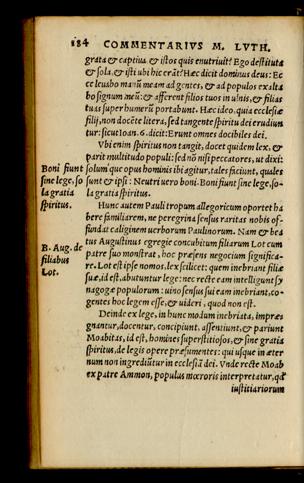 184 COMMENTARIVS M. LVTH.
grata & captiua, & istos quis enutriuit? Ego destituta
& sola, & isti ubi hic erāt? Hæc dicit dominus deus: Ec
ce leuabo manū meam ad gentes, & ad populos exalta
bo signum meū: & afferent filios tuos in ulnis, & filias
tuas super humerū portabunt. Hæc ideo, quia ecclesiæ
filij, non docēte litera, sed tangente spiritu dei erudiun
tur: sicut Ioan. 6. dicit: Erunt omnes docibiles dei.
Vbi enim spiritus non tangit, docet quidem lex, &
parit multitudo populi: sed nō nisi peccatores, ut dixi:
Boni fiunt
sine lege, so
la gratia
spiritus.
solum que opus hominis ibi agitur, tales ficiunt, quales
sunt & ipsi: Neutri uero boni. Boni fiunt sine lege, so-
la gratia spiritus.
Hunc autem Pauli tropum allegoricum oportet ha
bere familiarem, ne peregrina sensus raritas nobis of-
fundat caliginem uerborum Paulinorum. Nam & bea
B. Aug. de
filiabus
Lot.
tus Augustinus egregie concubitum filiarum Lot cum
patre suo monstrat, hoc præsens negocium significa-
re. Lot est ipse nomos, lex scilicet: quem inebriant filiæ
suæ, id est, abutuntur lege: nec recte eam intelligunt sy
nagogæ populorum: uino sensus sui eam inebriant, co-
gentes hoc legem esse, & uideri, quod non est.
Deinde ex lege, in hunc modum inebriata, impræs
gnantur, docentur, concipiunt, assentiunt, & pariunt
Moabitas, id est, homines superstitiosos, & sine gratia
spiritus, de legis opere præsumentes: qui usque in æter
num non ingrediūtur in ecclesiā dei. Vnde recte Moab
ex patre Ammon, populus mœroris interpretatur, qđ
iustitiariorum